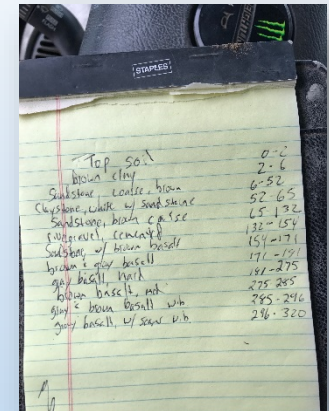 STAPLES
Top soil 0-2
brown clay 2-6
Sandstone, coarse, brown 6-52
Claystone, white w/ sandstone 52-65
Sandstone, brown coarse 65-132
cemented 132-154
Sandstone w/ brown basalt 154-171
brown & gray basalt 171-191
gray basalt, hard 191-275
brown basalt, med. 275-285
gray & brown basalt w.b. 285-296
gray basalt, w/ some w.b. 296-320